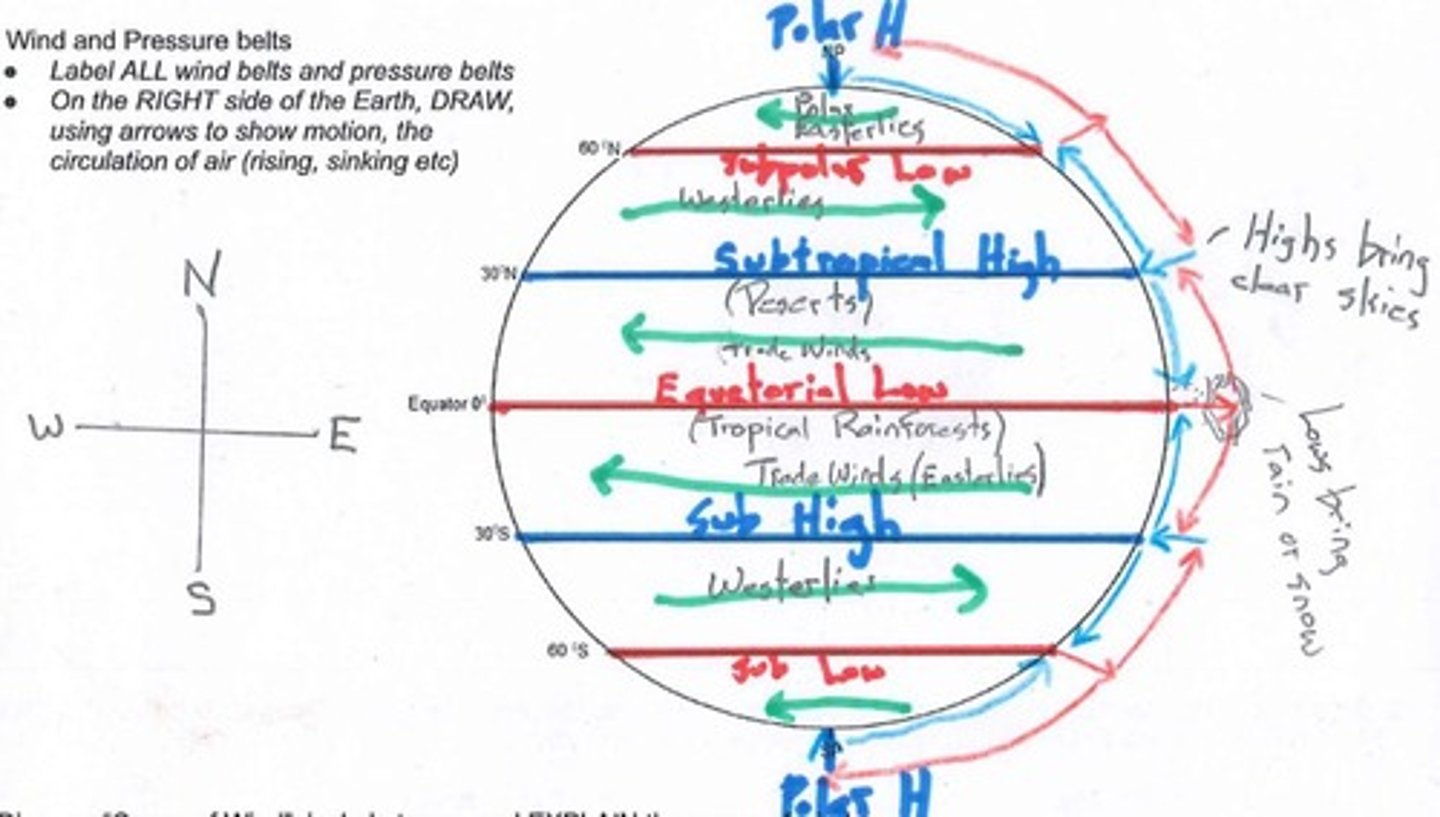 Polar H
Wind and Pressure belts
• Label ALL wind belts and pressure belts
• On the RIGHT side of the Earth, DRAW,
using arrows to show motion, the
circulation of air (rising, sinking etc)
NP
Polar
Easterlies
60°N
Subpolar Low
Westerlies
30°N
Subtropical High
(Deserts)
Highs bring
clear skies
Trade Winds
Equatorial Low
Equator 0°
(Tropical Rainforests)
Trade Winds (Easterlies)
Lows bring
rain or snow
Sub High
30°S
Westerlies
60°S
Sub Low
Polar H
N
W
E
S